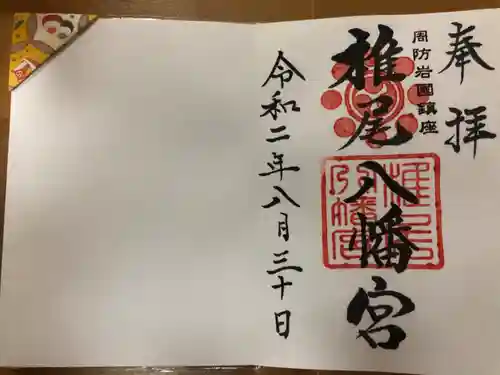 奉拝
周防岩國鎮座
椎尾八幡宮
椎尾八幡宮
令和二年八月三十日